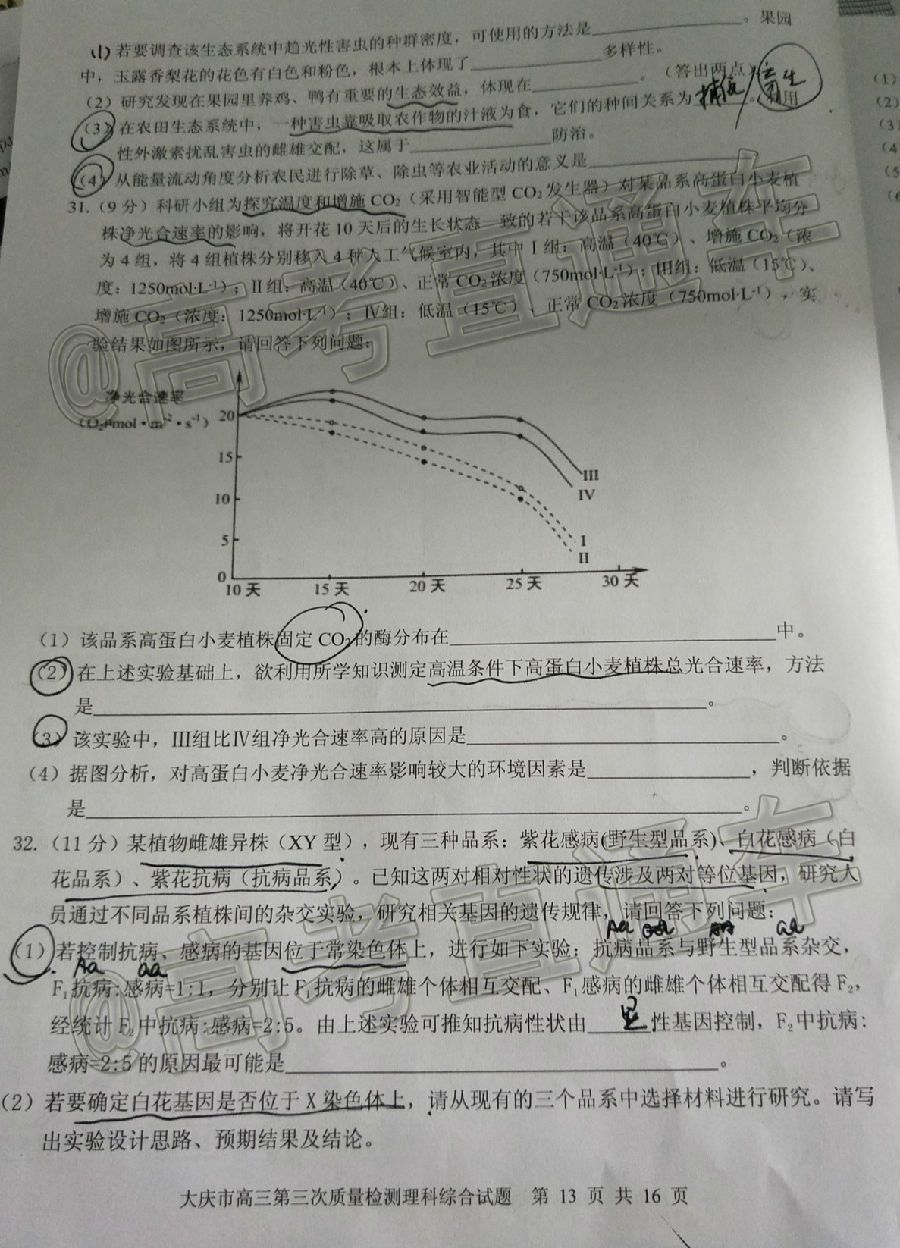 (1)若要调查该生态系统中趋光性害虫的种群密度，可使用的方法是____。果园
中，玉露香梨花的花色有白色和粉色，根本上体现了____多样性。
(2)研究发现在果园里养鸡、鸭有重要的生态效益，体现在____。(答出两点)
(3)在农田生态系统中，一种害虫靠吸取农作物的汁液为食，它们的种间关系为____。利用
性外激素扰乱害虫的雌雄交配，这属于____防治。
(4)从能量流动角度分析农民进行除草、除虫等农业活动的意义是____
31.(9分)科研小组为探究温度和增施CO₂(采用智能型CO₂发生器)对某品系高蛋白小麦植
株净光合速率的影响，将开花10天后的生长状态一致的若干该品系高蛋白小麦植株平均分
为4组，将4组植株分别移入4种人工气候室内，其中Ⅰ组：高温(40℃)、增施CO₂(浓
度：1250mol·L⁻¹)；Ⅱ组：高温(40℃)、正常CO₂浓度(750mol·L⁻¹)；Ⅲ组：低温(15℃)、
增施CO₂(浓度：1250mol·L⁻¹)；Ⅳ组：低温(15℃)、正常CO₂浓度(750mol·L⁻¹)，实
验结果如图所示，请回答下列问题：
净光合速率
20
15
10
5
0
III
IV
I
II
10天 15天 20天 25天 30天
(1)该品系高蛋白小麦植株固定CO₂的酶分布在____中。
(2)在上述实验基础上，欲利用所学知识测定高温条件下高蛋白小麦植株总光合速率，方法
是____。
(3)该实验中，Ⅲ组比Ⅳ组净光合速率高的原因是____。
(4)据图分析，对高蛋白小麦净光合速率影响较大的环境因素是____，判断依据
是____。
32.(11分)某植物雌雄异株(XY型)，现有三种品系：紫花感病(野生型品系)、白花感病(白
花品系)、紫花抗病(抗病品系)。已知这两对相对性状的遗传涉及两对等位基因，研究人
员通过不同品系植株间的杂交实验，研究相关基因的遗传规律，请回答下列问题：
(1)若控制抗病、感病的基因位于常染色体上，进行如下实验：抗病品系与野生型品系杂交，
Aa aa
F₁抗病:感病=1:1，分别让F₁抗病的雌雄个体相互交配、F₁感病的雌雄个体相互交配得F₂，
经统计F₂中抗病:感病=2:5。由上述实验可推知抗病性状由 显 性基因控制，F₂中抗病:
感病=2:5的原因最可能是____。
(2)若要确定白花基因是否位于X染色体上，请从现有的三个品系中选择材料进行研究。请写
出实验设计思路、预期结果及结论。
大庆市高三第三次质量检测理科综合试题 第 13 页 共 16 页
@高考直通车
@高考直通车